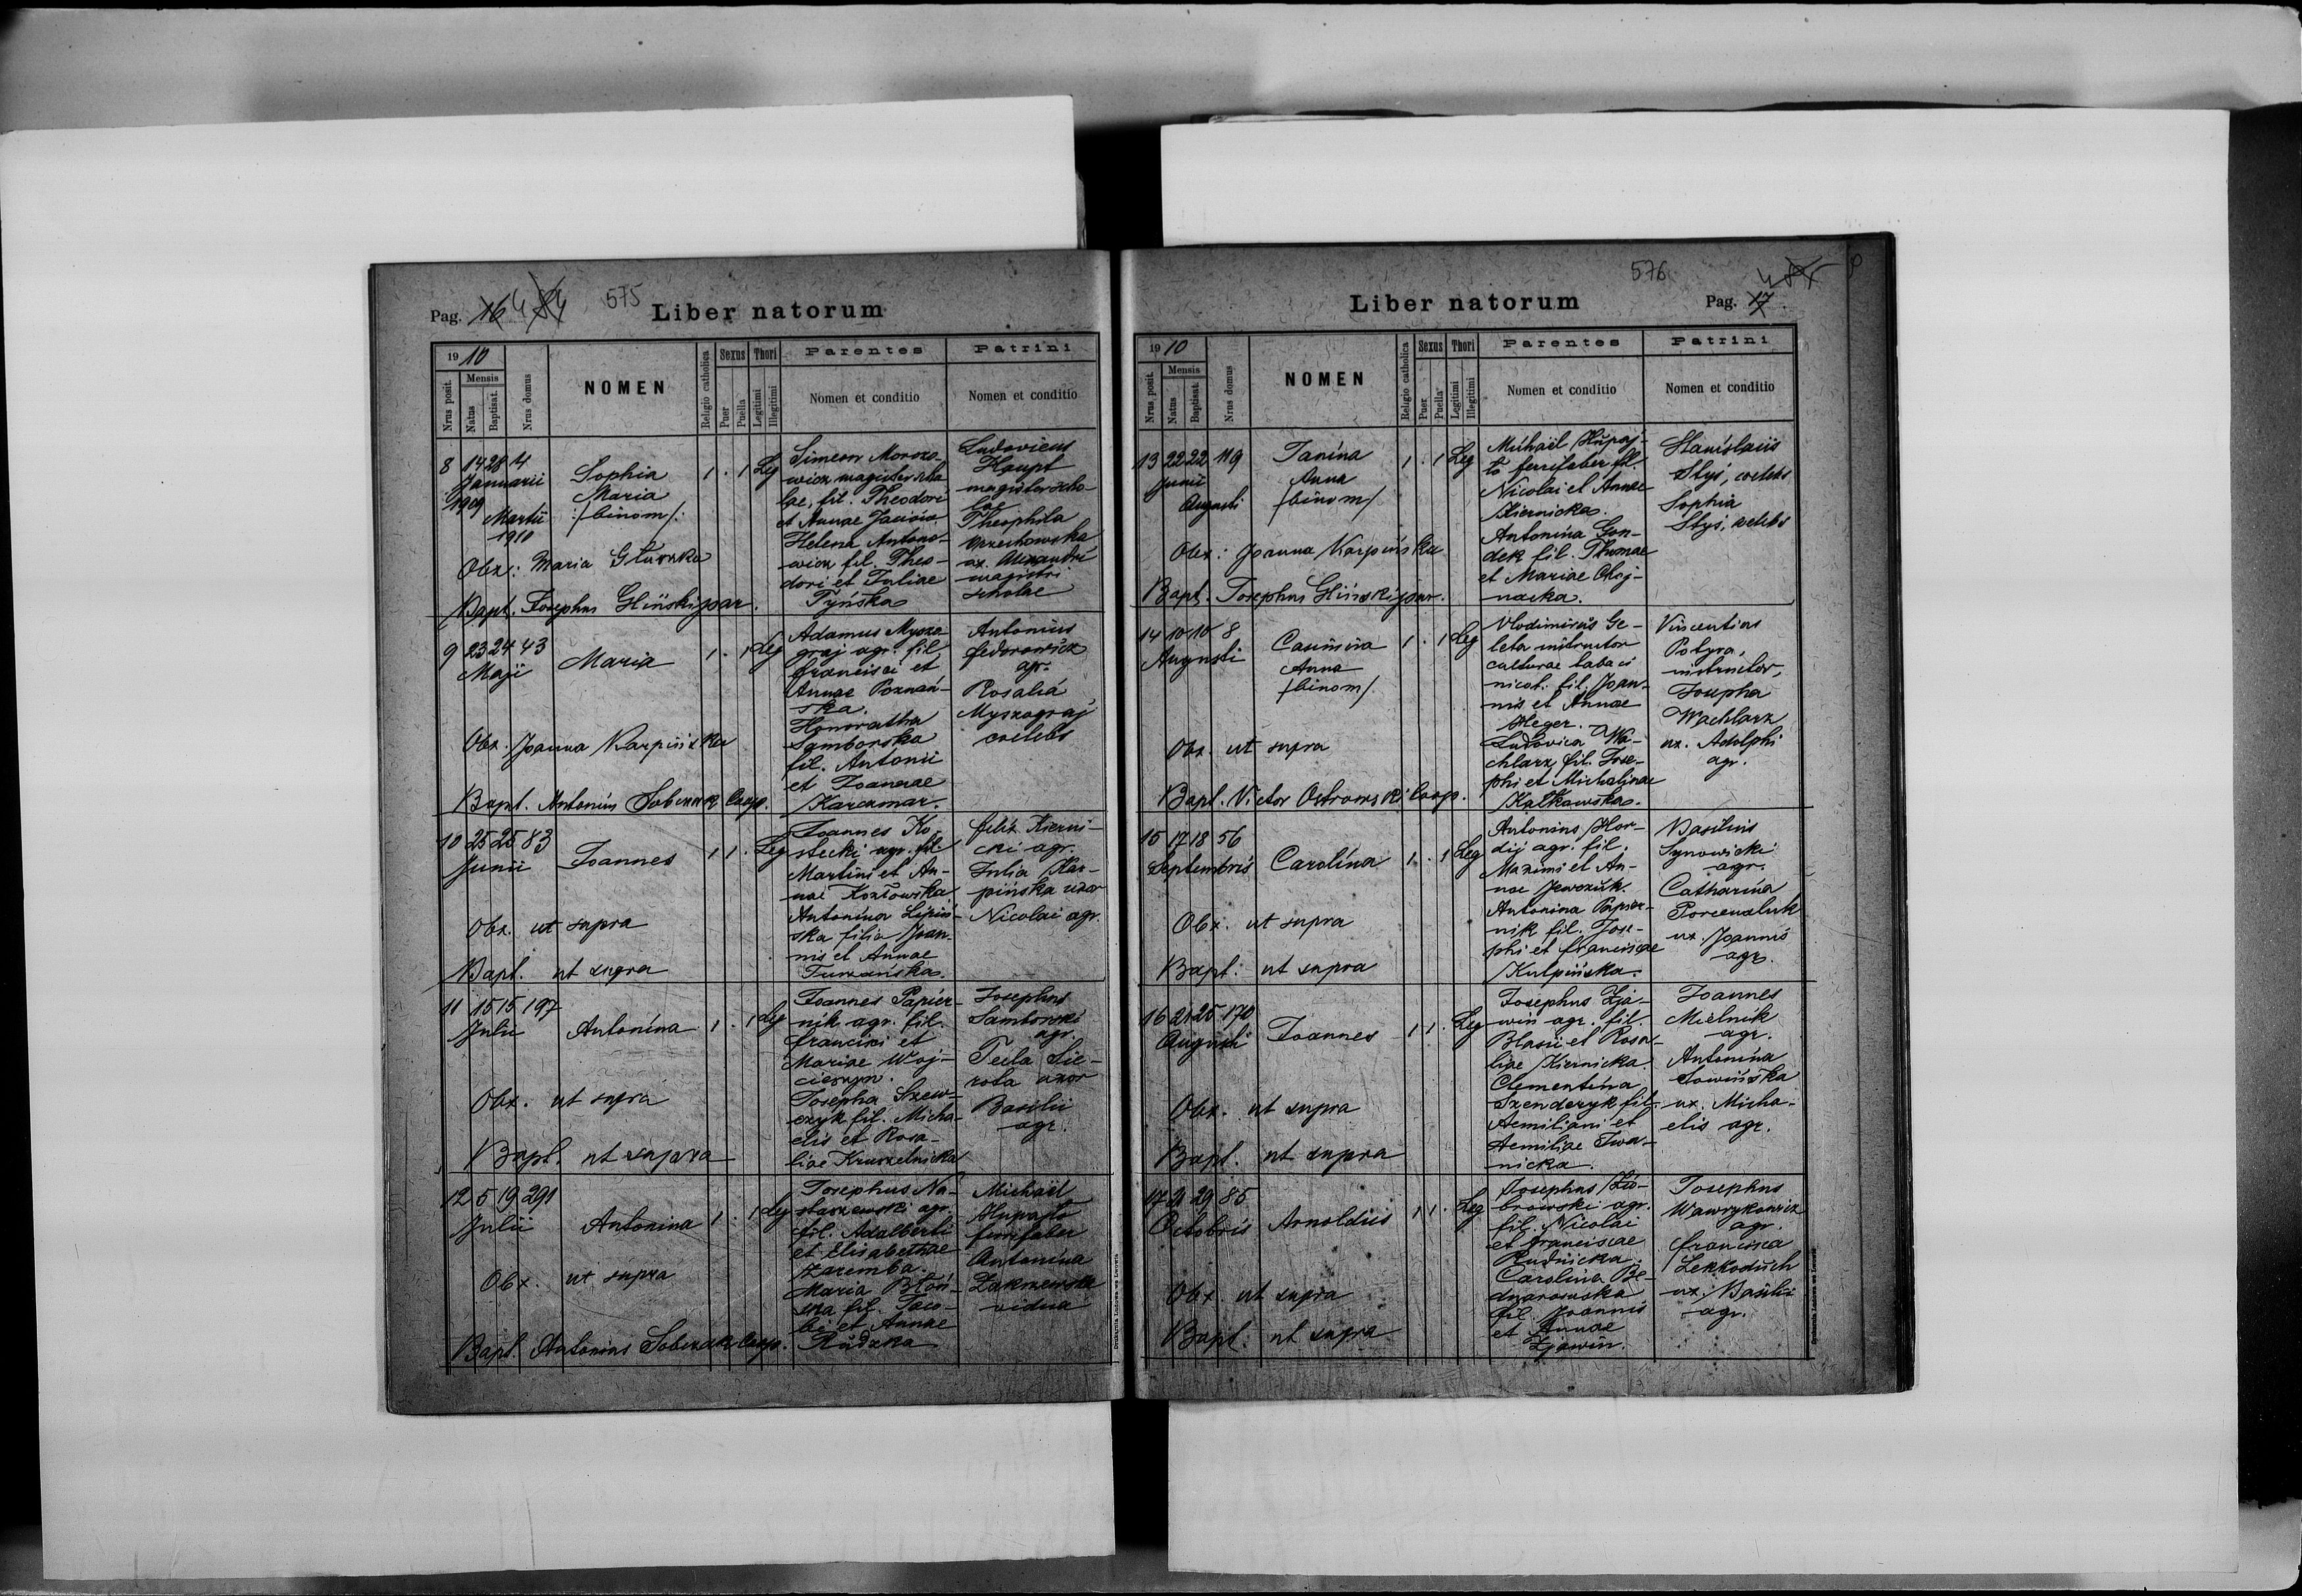 Pag. 16 575 Liber natorum
1910
Nrus posit.
Mensis
Natus
Baptisat.
Nrus domus
NOMEN
Religio catholica
Sexus
Puer
Puella
Thori
Legitimi
Illegitimi
Parentes
Nomen et conditio
Patrini
Nomen et conditio
8 14 28 4
Januarii
1909
Martii
1910
Sophia
Maria
/:binom/:
1 . 1 Leg
Simeon Moroze-
wicz magister scho
lae, fil. Theodori
et Annae
Helena Antono-
wicz fil. Theo-
dori et Juliae
Tyńska
Ludovicus
Haupt
magister scho-
lae
Theophila
Orzechowska
ux. Alexandri
magistri
scholae
Obx: Maria Głuszko
Bapt. Josephus Gliński par.
9 23 24 43
Maji
Maria
1 . 1 Leg
Adamus Myszo-
graj agr. fil.
Francisci et
Annae Poznań-
ska.
Honoratha
Samborska
fil. Antonii
et Joannae
Karczmar.
Antonius
Fedorowicz
agr.
Rosalia
Myszograj
coelebs
Obx. Joanna Karpińska
Bapt. Antonius Sobczak Coop.
10 25 25 83
Junii
Joannes
1 1 . Leg
Joannes Ko-
stecki agr. fil.
Martini et An-
nae Kozłowska
Antonina Lipiń-
ska filia Joan-
nis et Annae
Tumańska
Felix Kierni-
cki agr.
Julia Kar-
pińska uxor
Nicolai agr.
Obx. ut supra
Bapt. ut supra
11 15 15 197
Julii
Antonina
1 . 1 Leg
Joannes Papier-
nik agr. fil.
Francisci et
Mariae Woj-
cieszyn.
Josepha Szew-
czyk fil. Micha-
elis et Rosa-
liae Kruszelnicka
Josephus
Samborski
agr.
Tecla Sie-
rota uxor
Basilii
agr.
Obx. ut supra
Bapt. ut supra
12 5 19 291
Julii
Antonina
1 . 1 Leg
Josephus Na-
staszewski agr.
fil. Adalberti
et Elisabethae
Zaremba.
Maria Błoń-
ska fil. Jaco-
bi et Annae
Rudzka
Michaël
Hupajło
ferrifaber
Antonina
Zakrzewska
vidua
Obx. ut supra
Bapt. Antonius Sobczak Coop.
576
Liber natorum Pag. 17
1910
Nrus posit.
Mensis
Natus
Baptisat.
Nrus domus
NOMEN
Religio catholica
Sexus
Puer
Puella
Thori
Legitimi
Illegitimi
Parentes
Nomen et conditio
Patrini
Nomen et conditio
13 22 22 119
Junii
Augusti
Janina
Anna
/binom/
1 . 1 Leg
Michaël Hupaj-
ło ferrifaber fil.
Nicolai et Annae
Kiernicka.
Antonina Gon-
dek fil. Thomae
et Mariae Choj-
nacka.
Stanislaus
Styś, coelebs
Sophia
Styś, coelebs
Obx: Joanna Karpińska
Bapt. Josephus Gliński par.
14 10 10 8
Augusti
Casimira
Anna
/binom/
1 . 1 Leg
Vlodimirus Ge-
leta instructor
culturae tabaci
nicot. fil. Joan-
nis et Annae
Heger.
Ludovica Wa-
chlarz, fil. Jose-
phi et Michalinae
Kałkowska.
Vincentius
Potyra,
instructor,
Josepha
Wachlarz
ux. Adolphi
agr.
Obx. ut supra
Bapt. Victor Ostrowski Coop.
15 17 18 56
Septembris
Carolina
1 . 1 Leg
Antonius Hor-
dij agr. fil.
Maximi et An-
nae
Antonina Papier-
nik fil. Jose-
phi et Franciscae
Kulpińska.
Basilius
Synowicki
agr.
Catharina
Porcenaluk
ux. Joannis
agr.
Obx. ut supra
Bapt: ut supra
16 21 25 170
Augusti
Joannes
1 1 . Leg
Josephus Zja-
win agr. fil.
Blasii et Rosa-
liae Kiernicka.
Clementina
Szenderyk fil.
Aemiliani et
Aemiliae Iwa-
nicka.
Joannes
Mielnik
agr.
Antonina
Sowińska
ux. Micha-
elis agr.
Obx. ut supra
Bapt. ut supra
17 21 29 85
Octobris
Arnoldus
1 1 . Leg
Josephus Zió-
browski agr.
fil. Nicolai
et Franciscae
Rudnicka.
Carolina Be-
dnarowska
fil. Joannis
et Annae
Zjawin.
Josephus
Wawrykowicz
agr.
Francisca
ux. Basilii
agr.
Obx. ut supra
Bapt. ut supra